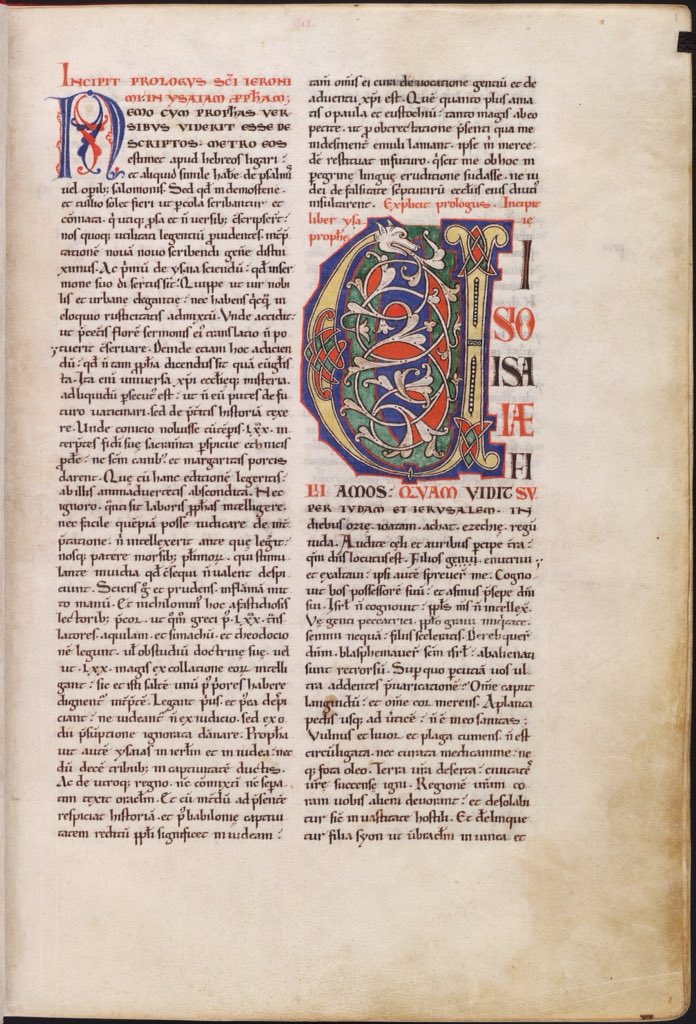 Incipit prologus sc̄i ieroni
mi in ysaiam ꝓpham;
Nemo cum prophas ver
sibus viderit esse de
scriptos metro eos
estimet apud hebreos ligari;
et aliquid simile habe de psalmis
uel opib; salomonis. Sed qd in demostene.
et tullio solet fieri ut p cola scribantur et
comata. q̄ utiq; ꝓsa et n̄ versib; c̄scripsert:
nos quoq; utilitati legentiū prudentes int̄p
tationē nouā nouo scribendi geńe distin
ximus. Ac p̄mū de ysaia sciendū: qd in ser
mone suo disertus sit. Quippe ut uir nobi
lis et urbane elegantie: nec habens q̄cq̄ in
eloquio rusticitatis admixtū. Vnde accidit:
ut p̄ceteris florē sermonis ei translatio n̄ po
tuerit c̄seruare. Deinde etiam hoc adicien
dū: qd n̄ tam ꝓpha dicendus sit quā euḡlis
ta. Ita eni uniuersa xp̄i eccleq; misteria.
ad liquidū ꝓsecut᷒ est: ut n̄ eū putes de fu
turo vaticinari. sed de p̄teritis historiā texe
re. Unde conicio noluisse tunc tēpis .lxx. in
terp̄tes fidi suę sacram̄ta ꝑspicue ethnicis
ꝓde: ne sc̄m canib; et margaritas porcis
darent. Que cū hanc editionē legeritis:
ab illis animaduertetis abscondita. Nec
ignoro. q̄nti sit laboris ꝓphas intelligere.
nec facile quēpiā posse iudicare de int̄
p̄tatione. n̄ intellexerit ante que legit:
nosq; patere morsib; plimor. qui stimu
lante inuidia qd c̄sequi n̄ ualent despi
ciunt. Sciens g̊ et prudens. in flāmā mit
to manū. Et nichilomin᷒ hoc a fastidiosis
lectorib; p̄cor. ut qm̄ greci p̄ .lxx. t̄ns
latores. aquilam. et simachū et theodocio
nē legunt. ul̄ ob studiū doctrine sue. uel
ut .lxx. magis ex collatione eor intelli
gant: sic et isti saltē unū p̄ p̄ores habere
dignent int̄ptē. Legant p̄us. et p̄ea despi
ciant: ne uideant n̄ ex iudicio. sed ex o
dii p̄sūptione ignorata dānare. Propha
uit autē ysaias in ierl̄m et in iudea: nec
dū decē tribub; in captiuitatē ductis.
Ac de utroq; regno. nc̄ conixti nc̄ sepa
tim texit oraclm̄. Et cū int̄dū ad p̄sentē
respiciat historiā. et p̄ babilonię captiui
tatem reditū ppl̄i significet in iudeam:
tam̄ om̄is ei cura de uocatione gentiū et de
aduentu xp̄i est. Quē quanto plus ama
tis o paula et eustochiū: tanto magis ab eo
petite. ut p̄ obtrectatione p̄senti qua me
indesinent̄ emuli laniant. ipse m̄ merce
dē restituat in futuro. q̄ scit me ob hoc in
peregrine linguę eruditione sudasse. ne iu
dei de falsitate sc̄pturarū ecclsiis ei᷒ diuti᷒
insultarent. Explicit prologus. Incipit
liber ysa ię
prophę
VI
I
SO
ISA
IÆ
FI
LII AMOS: QVAM VIDIT SV
PER IVDAM ET IERVSALEM. IN
diebus ozię. ioatam. achat. ezechię. regū
iuda. Audite cęli et auribus pcipe t̄ra:
qm̄ dn̄s locutus est. Filios genui. enutriui
et exaltaui: ipsi autē spreuer̄ me. Cogno
uit bos possessorē suū: et asinus p̄sepe dn̄i
sui. Isrl̄ n̄ cognouit: ppl̄s m̄s n̄ intellex̄.
Ve genti peccatrici. ppl̄o graui iniq̄tate.
semini nequā: filiis sceleratis. Dereliquer̄
dn̄m. blasphemauer̄ sc̄m isrl̄: abalienati
sunt retrorsū. Sup quo pcutiā uos ul
tra. addentes p̄uaricationē: Om̄e caput
languidū: et om̄e cor merens. A planta
pedis usq; ad uerticē: n̄ ē in eo sanitas:
Vulnus et liuor. et plaga tumens. n̄ est
circūligata. nec curata medicamine: ne
q; fota oleo. Terra ur̄a deserta: ciuitates
ur̄ę succensę igni. Regionē ur̄am co
ram uobis alieni deuorant: et desolabi
tur sic̄ in uastitate hostili. Et derelinque
tur filia syon ut ūbraclm̄ in uinea. et